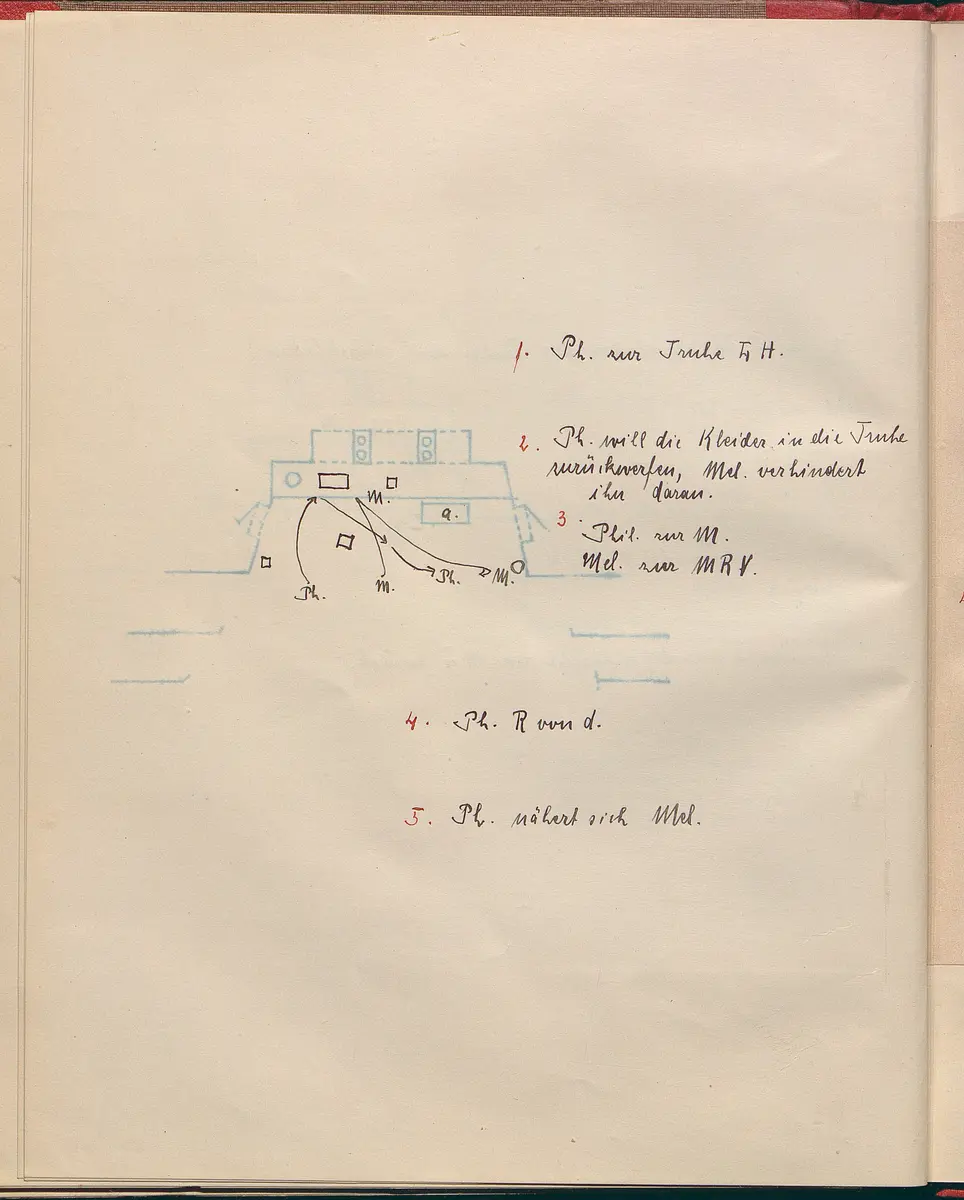 1. Ph. zur Truhe H.
2. Ph. will die Kleider in die Truhe
zurückwerfen, Mel. verhindert
ihn daran.
3. Phil. zur M.
Mel. zur M R V.
M.
a.
Ph. M. Ph. M.
4. Ph. R von d.
5. Ph. nähert sich Mel.